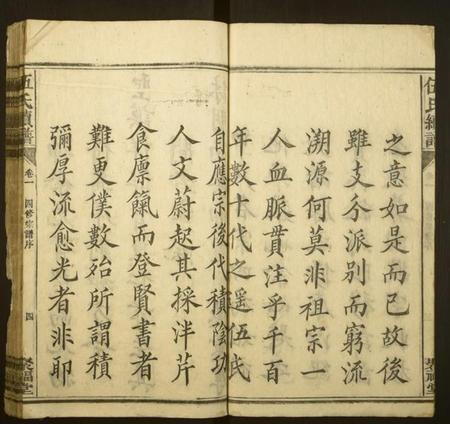 之意如是而已故後
雖支分派別而窮流
溯源何莫非祖宗一
人血脈貫注乎千百
年數十代之遥伍氏
自應宗後代積陰功
人文蔚起其採泮芹
食廩餼而登賢書者
難更僕數殆所謂積
彌厚流愈光者非耶
伍氏續譜
卷一
四修宗譜序
四
聚福堂
伍氏續譜
聚福堂